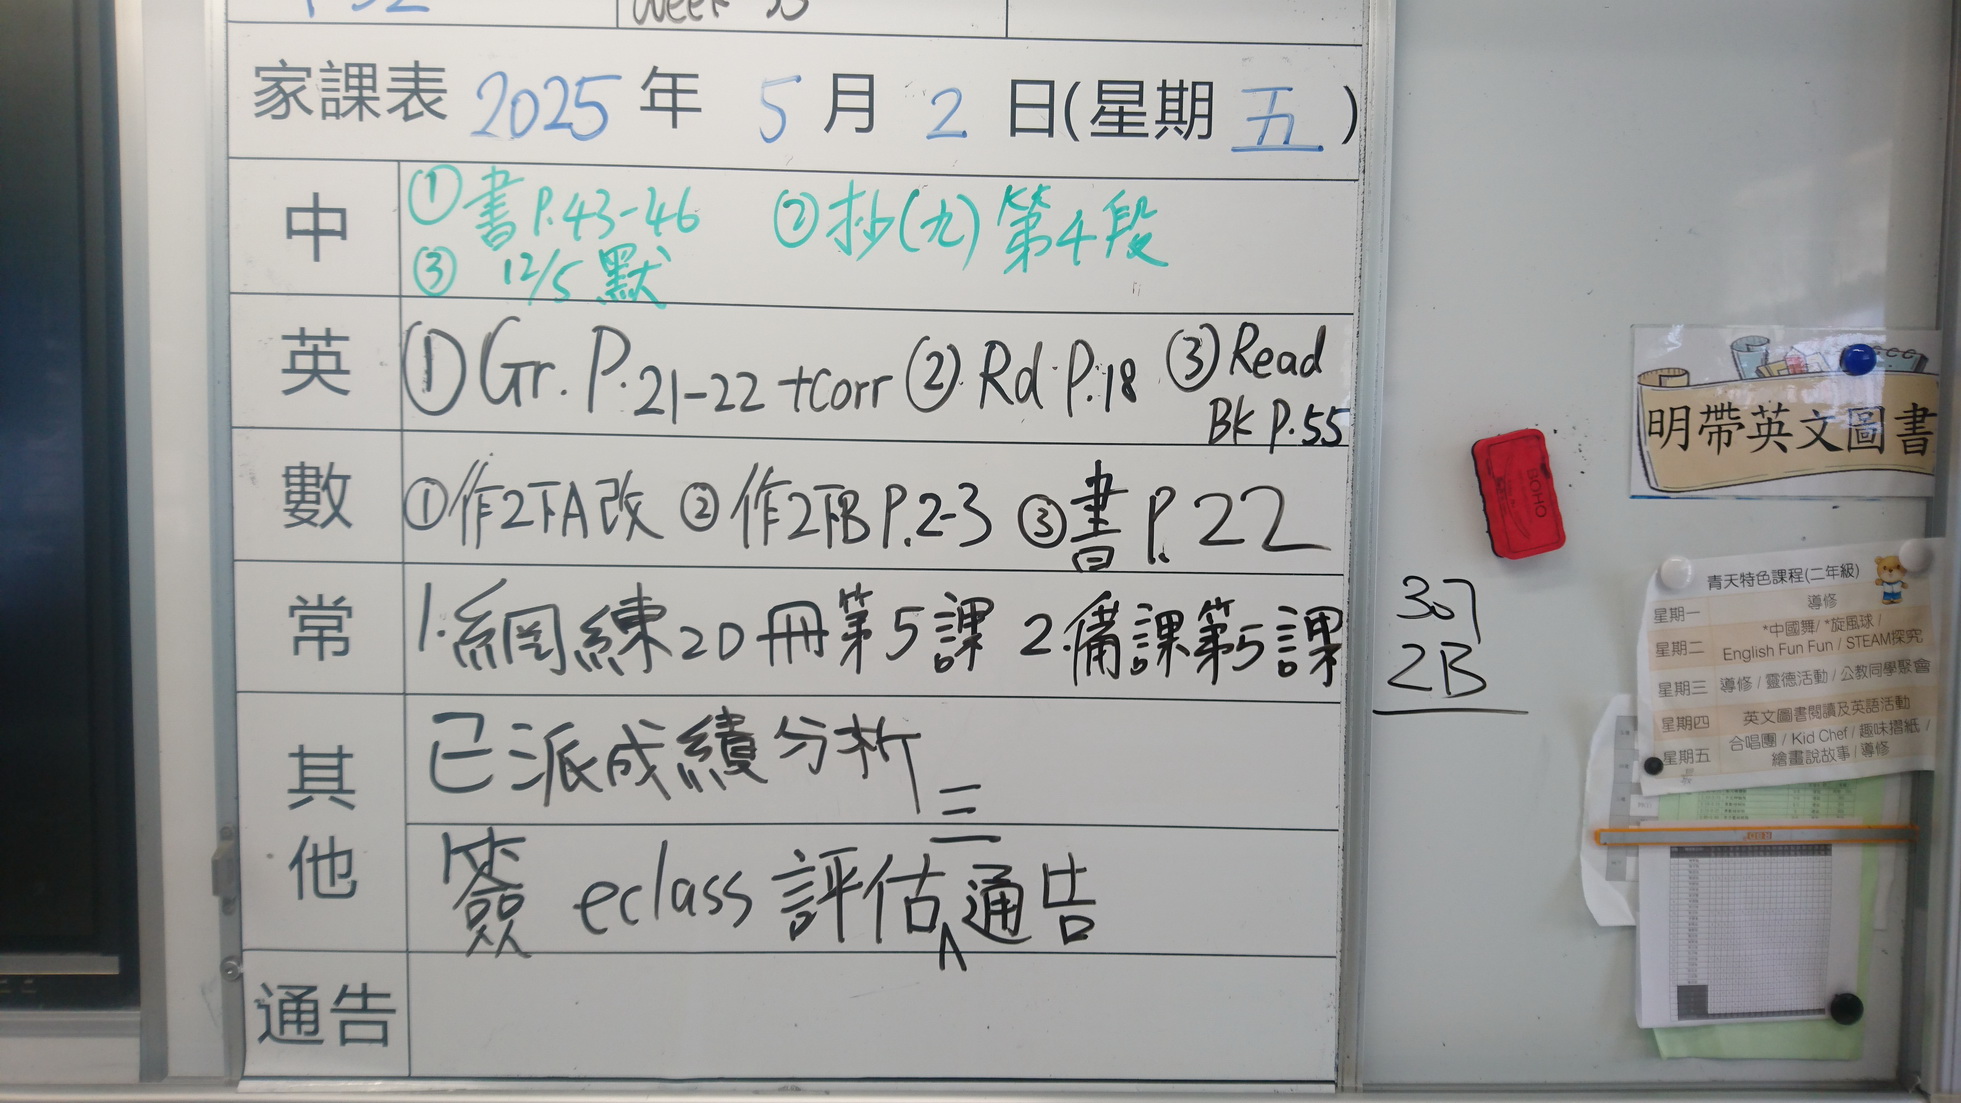 家課表 2025 年 5 月 2 日(星期 五 )
中
① 書 P.43-46 ② 抄(九) 第4段
③ 12/5 默
英
① Gr. P.21-22 +corr ② Rd P.18 ③ Read
BK P.55
數
① 作2下A改 ② 作2下B P.2-3 ③ 書 P.22
常
1.網練2D冊第5課 2.備課第5課
其他
已派成績分析
簽 eclass 評估三通告
通告
307
2B
明帶英文圖書
BOHO
青天特色課程(二年級)
星期一 導修
星期二 *中國舞/ *旋風球 /
English Fun Fun / STEAM探究
星期三 導修 / 靈德活動 / 公教同學聚會
星期四 英文圖書閱讀及英語活動
星期五 合唱團 / Kid Chef / 趣味摺紙 /
繪畫說故事 / 導修